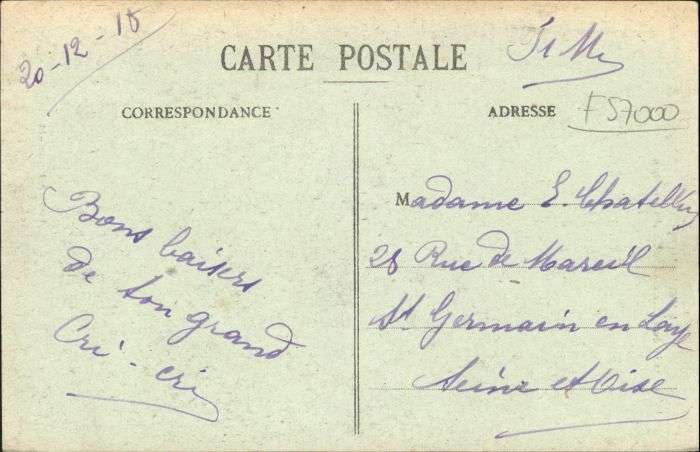 20-12-18
CARTE POSTALE
CORRESPONDANCE
ADRESSE
FS7000
Bons baisers
de ton grand
Cri-cri
Madame E.
28 Rue de Mareil
St Germain en Laye
Seine et Oise